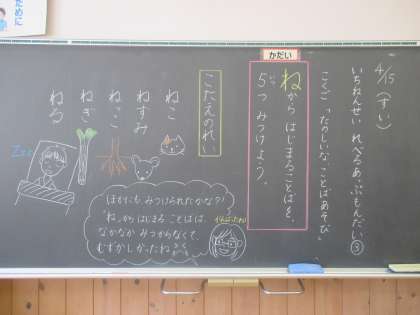 4/15（すい）
いちねんせい れべるあっぷもんだい③
こくご「たのしいな、ことばあそび」
かだい
ねから はじまることばを、
5つ みつけよう。
こたえのれい
ねこ
ねずみ
ねっこ
ねぎ
ねる
Zzz
ほかにも、みつけられたかな？！
「ね」から はじまる ことばは、
なかなか みつからなくて、
むずかしかったね